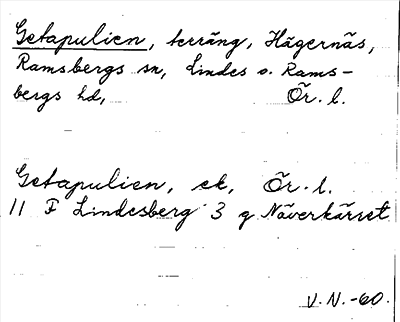 Getapulien, terräng, Hägernäs,
Ramsbergs sn, Lindes o. Rams-
bergs hd, Ör. l.
Getapulien, ek, Ör. l.
11 F Lindesberg 3 g Näverkärret
V.N.-60.